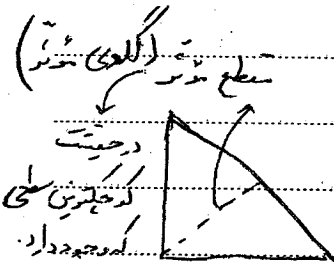 مقطع مؤثر (گلوی مؤثر)
در حقیقت
کوچکترین سطحی
که وجود دارد.